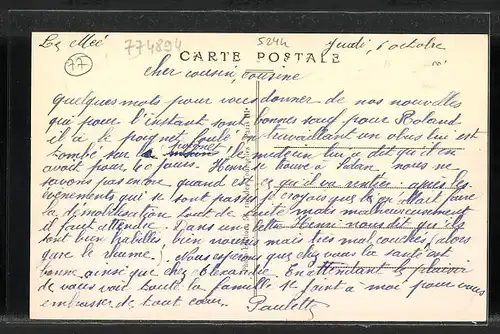 Le Mée
774894
5244
Jeudi, 6 octobre
77
CARTE POSTALE
Cher cousin, cousine
quelques mots pour vous donner de nos nouvelles
qui pour l'instant sont bonnes sauf pour Roland
il a le poignet foulé en travaillant un obus lui est
tombé sur le poignet le médecin lui a dit qu'il en
avait pour 40 jours. Henri se trouve à nous ne
savons pas encore quand est ce qu'il va rentrer après les
événements qui se sont passés je croyais que ça allait faire
la démobilisation tout de suite mais malheureusement
il faut attendre. Dans un lettre Henri nous dit qu'ils
sont bien habillés, bien nourris mais très mal couchés, alors
gare le rhume! Nous espérons que chez vous la santé est
bonne ainsi que chez En attendant le plaisir
de vous voir toute la famille se joint à moi pour vous
embrasser de tout cœur. Paulette